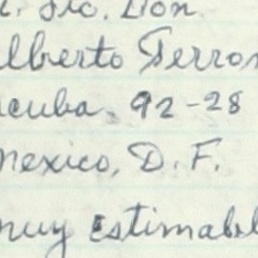 r. Lic. Don.
lberto Terron
acuba, 92-28
mexico, D. F.
muy Estimabl